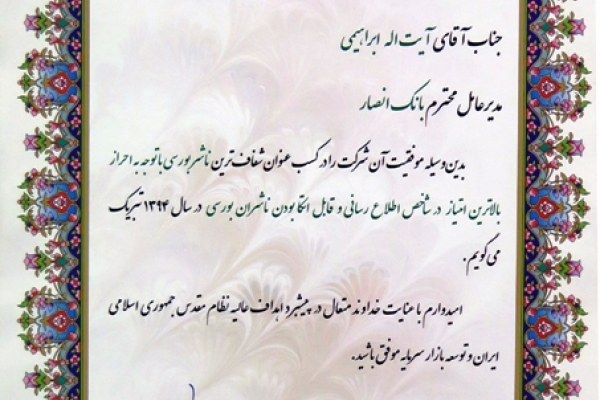 جناب آقای آیت اله ابراهیمی
مدیرعامل محترم بانک انصار
بدین وسیله موفقیت آن شرکت را در کسب عنوان شفاف ترین ناشر بورسی با توجه به احراز
بالاترین امتیاز در شاخص اطلاع رسانی و قابل اتکا بودن ناشران بورسی در سال ۱۳۹۴ تبریک
می گویم.
امیدوارم با عنایت خداوند متعال در پیشبرد اهداف عالیه نظام مقدس جمهوری اسلامی
ایران و توسعه بازار سرمایه موفق باشید.